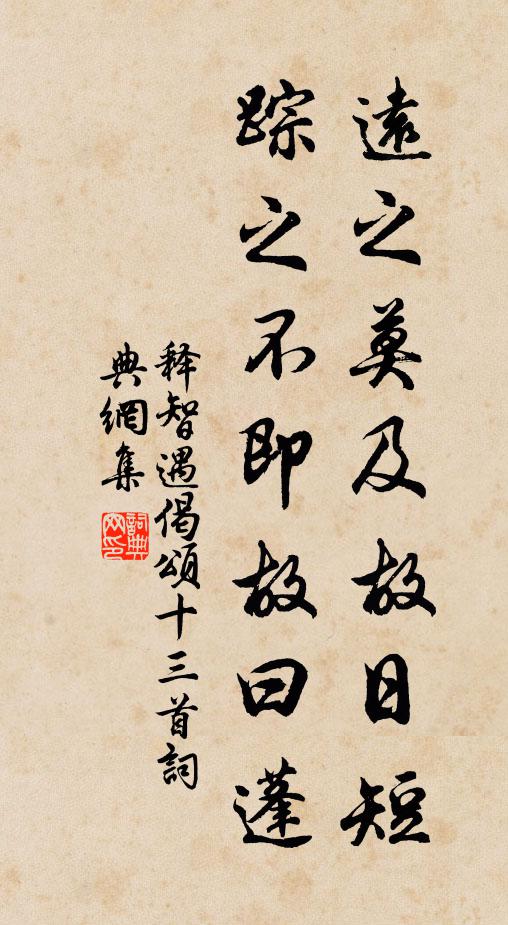 遠之莫及故日短
踪之不即故曰蓬
释智遇偈頌十三首詞
典網集
詞典网印